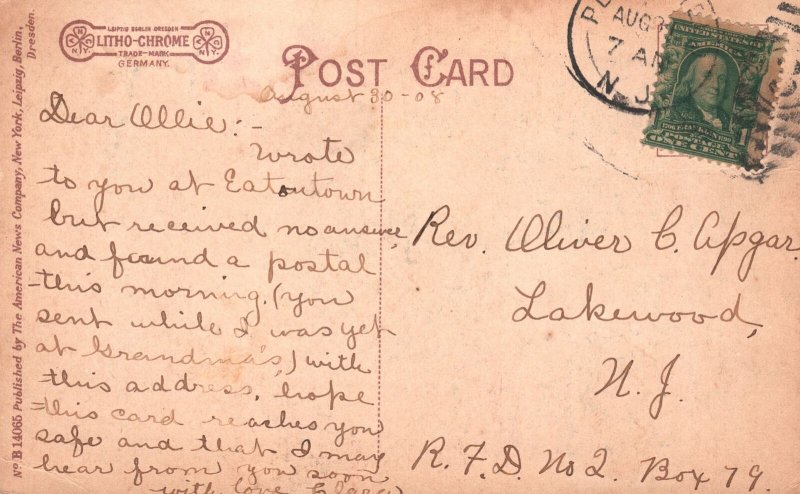 LEIPZIG BERLIN DRESDEN
LITHO-CHROME
TRADE-MARK
GERMANY.
POST CARD
AUG
7 AM
N. J.
UNITED STATES OF
AMERICA
POSTAGE
ONE CENT
No B 14065 Published by The American News Company, New York, Leipzig, Berlin,
Dresden.
August 30-08
Dear Ollie:-
Wrote
to you at Eatontown
but received no answer
and found a postal
this morning. (you
sent while I was yet
at Grandma's,) with
this address, hope
this card reaches you
safe and that I may
hear from you soon
with love Clara
Rev. Oliver C. Apgar.
Lakewood,
N. J.
R. F. D. No 2. Box 79.